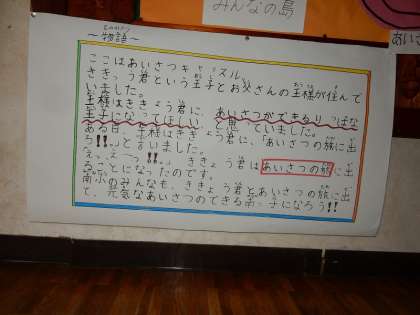 みんなの島
ものがたり
～物語～
ここはあいさつキャッスル。
ききょう君という王子とお父さんの王様が住んで
いました。
王様はききょう君に、あいさつができるりっぱな
王子になってほしいと思っていました。
ある日、王様はききょう君に、「あいさつの旅に出
ろ!!」と言いました。
えっ、えーっ!!、ききょう君はあいさつの旅に出
ることになったのです。
南小のみんなも、ききょう君とあいさつの旅に出
て、元気なあいさつのできる南っ子になろう!!
あいさ